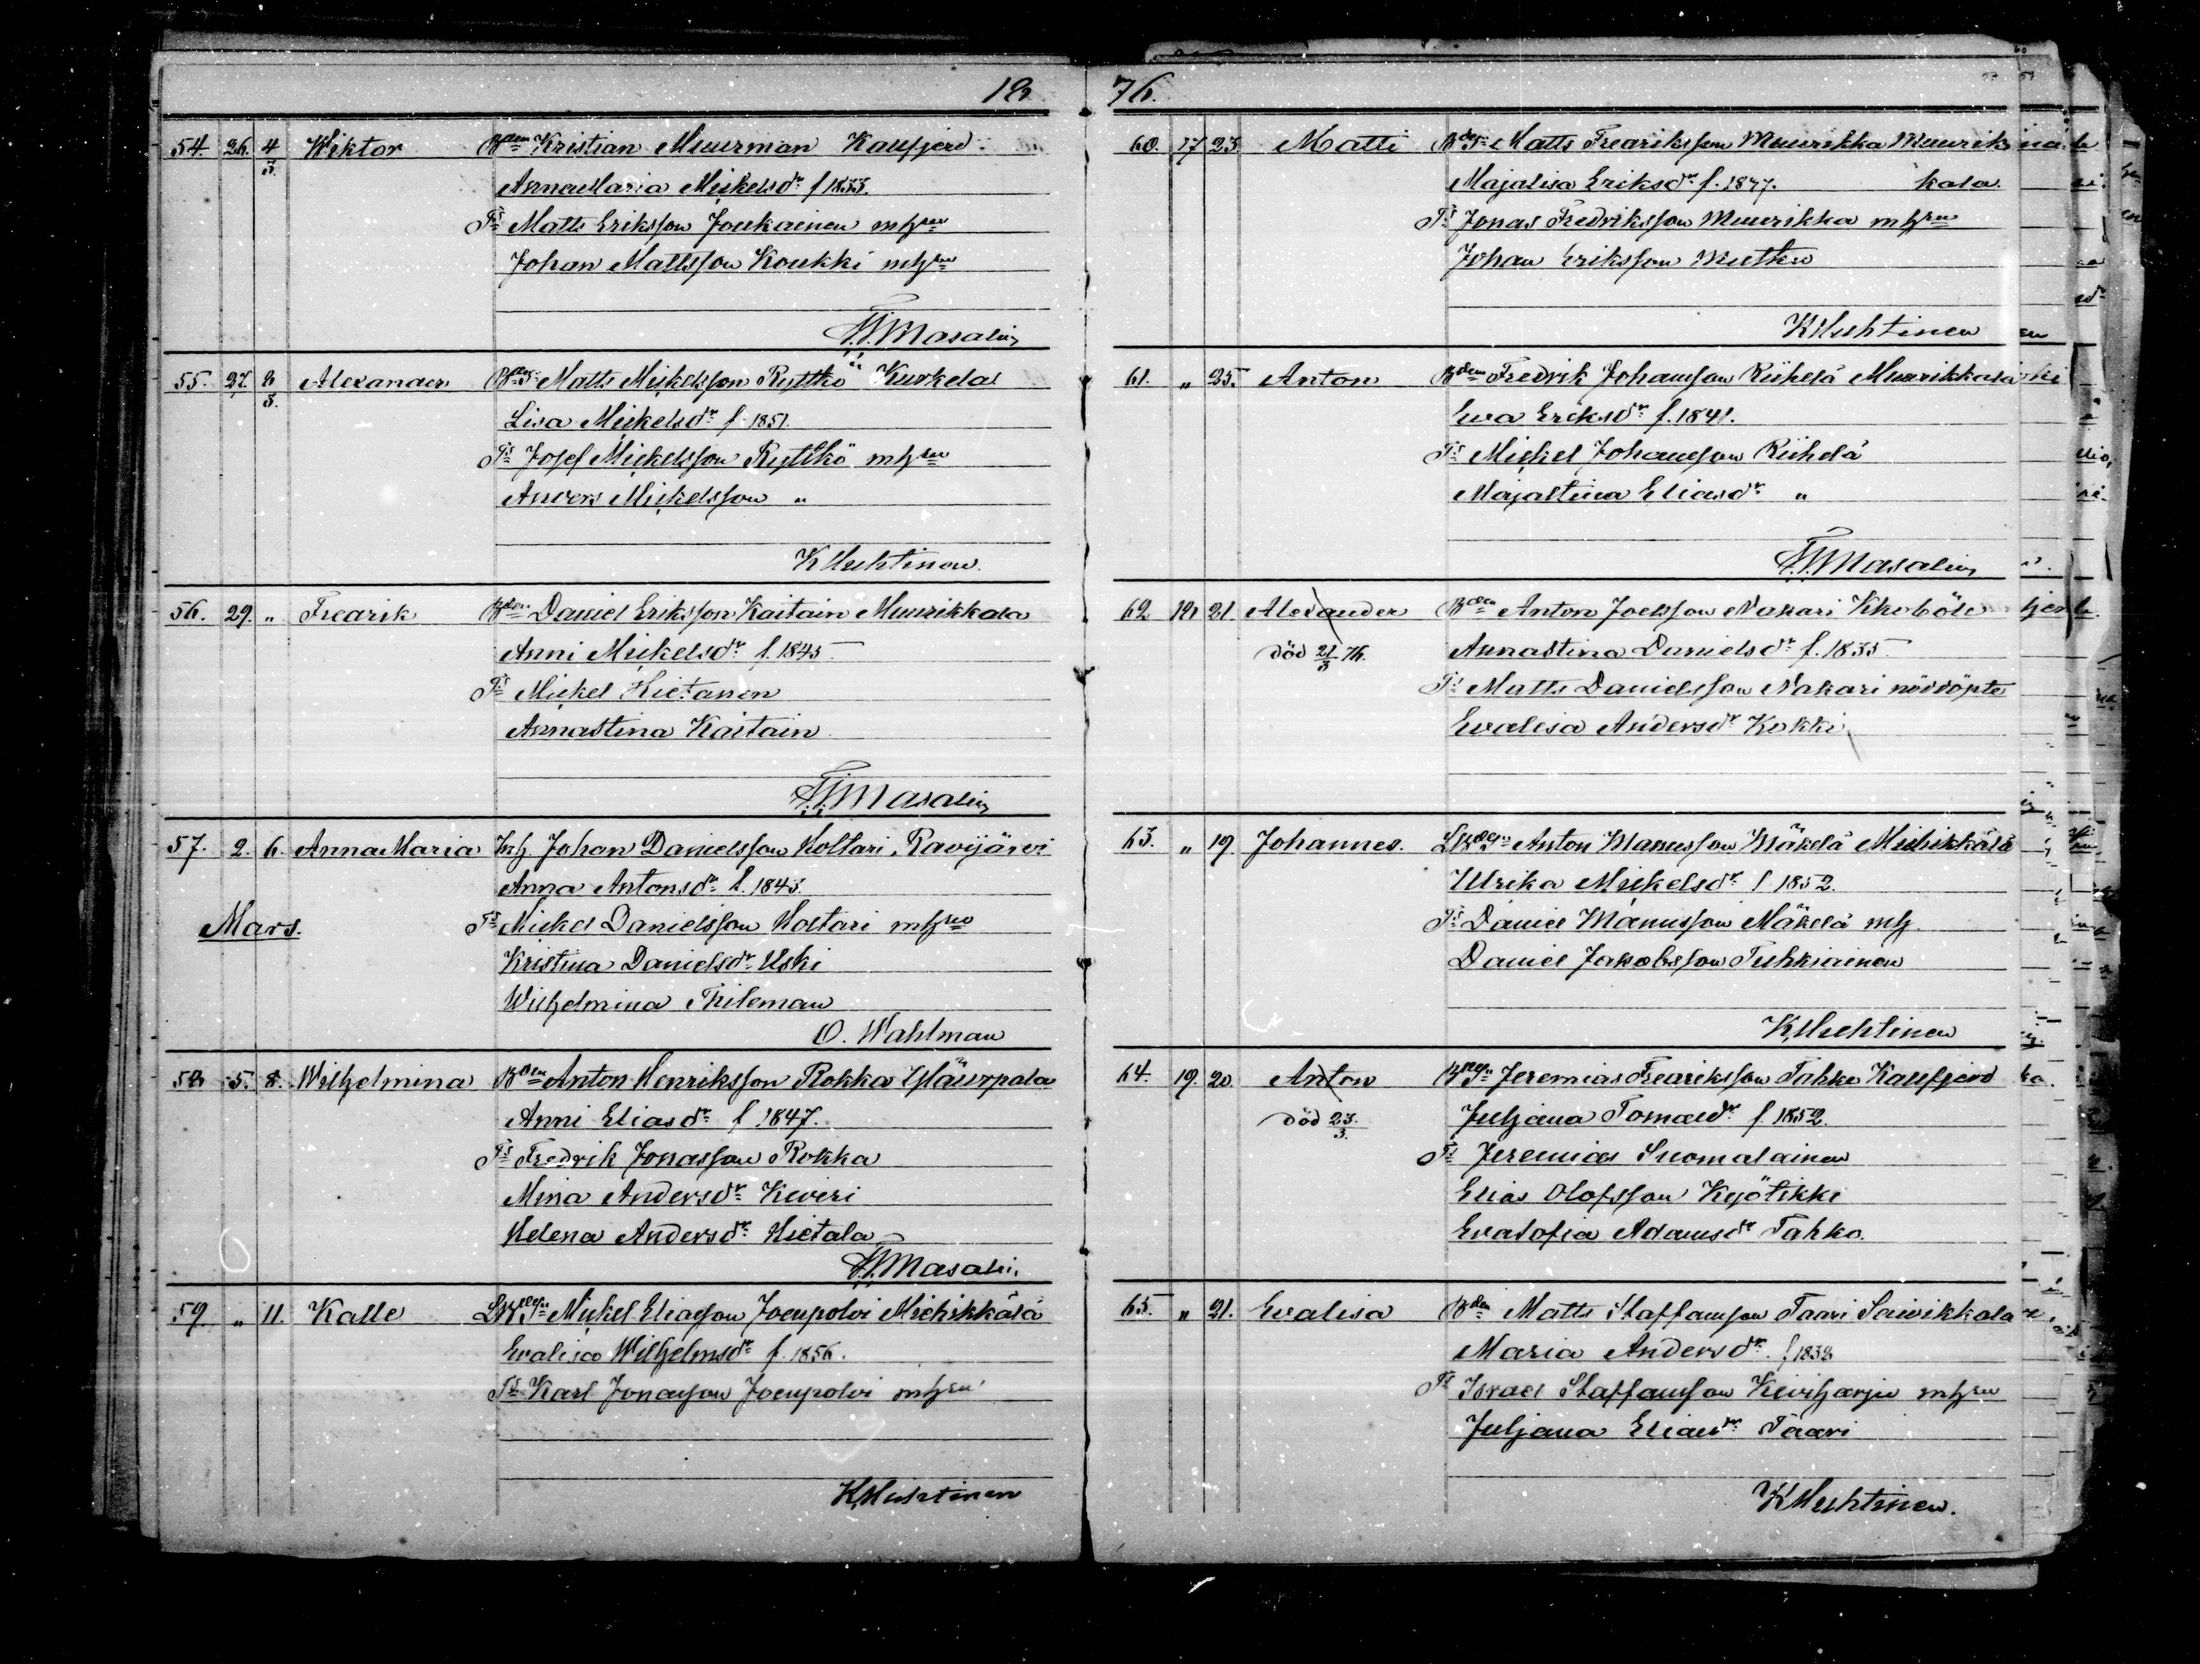 18
54. 26. 4/3 Wiktor Bden Kristian Muurman Kaufjerd
AnnaMaria Mickelsdr f 1833.
Ts Matts Eriksson Joukainen mhsru
Johan Mattsson Koukki mhsru
F.F. Masalin
55. 27. 2/3. Alexander Matts Mickelsson Ryttkö Kurkela
Lisa Mickelsdr f 1851.
Ts Josef Mickelsson Ryttkö mhsru
Anders Mickelsson "
K Huhtinen.
56. 29. " Fredrik Bden Daniel Eriksson Kaitain Muurikkala
Anni Mickelsdr f. 1845
Ts Mickel Hietanen
Annastina Kaitain
F.F. Masalin
57. 2. 6. AnnaMaria Inh Johan Danielsson Holtari, Ravijärvi
Anna Antonsdr f. 1843.
Mars. Ts Mickel Danielsson Holtari mhsru
Kristina Danielsdr Uski
Wilhelmina Thileman
O. Wahlman
58 5. 8. Wilhelmina Bden Anton Henriksson Rokka Yläurpala
Anni Eliasdr f 1847.
Ts Fredrik Jonasson Rokka
Mina Andersdr Kiveri
Helena Andersdr Hietala
F.F. Masalin
59 " 11. Kalle Mickel Eliasson Joenpolvi Miehikkälä
Evalisa Wilhelmsdr f. 1856.
Ts Karl Jonasson Joenpolvi mhsru
K Huhtinen
76.
60. 17 23. Matti Matts Fredriksson Muurikka Muurik
Majalisa Eriksdr f. 1847. kala.
Ts Jonas Fredriksson Muurikka mhsru
Johan Eriksson Mutka
K Huhtinen
61. " 25. Anton Bden Fredrik Johansson Riihelä Muurikkala
Eva Eriksdr f. 1841.
Ts Mickel Johansson Riihelä
Majastina Eliasdr "
F.F. Masalin
62 18 21. Alexander Bden Anton Joelsson Nakari
död 21/3 76. Annastina Danielsdr f. 1835
Ts Matts Danielsson Nakari nöddöpte
Evalisa Andersdr Kokki
63. " 19. Johannes. Anton Manusson Mäkelä Miehikkälä
Ulrika Mickelsdr f 1852.
Ts Daniel Manusson Mäkelä mh
Daniel Jakobsson Tuhkiainen
K Huhtinen
64. 19. 20 Anton Jeremias Fredriksson Tahko Kaufjerd
död 23./3. Juljana Tomasdr f. 1852.
Ts Jeremias Suomalainen
Elias Olofsson Kyötikki
Evasofia Adamsdr Tahko.
65. " 21. Evalisa Bden Matts Staffansson Taari Saivikkala
Maria Andersdr. f 1838
Ts Israel Staffansson Kiviharju mhsru
Juljana Eliasdr Taari
K Huhtinen.